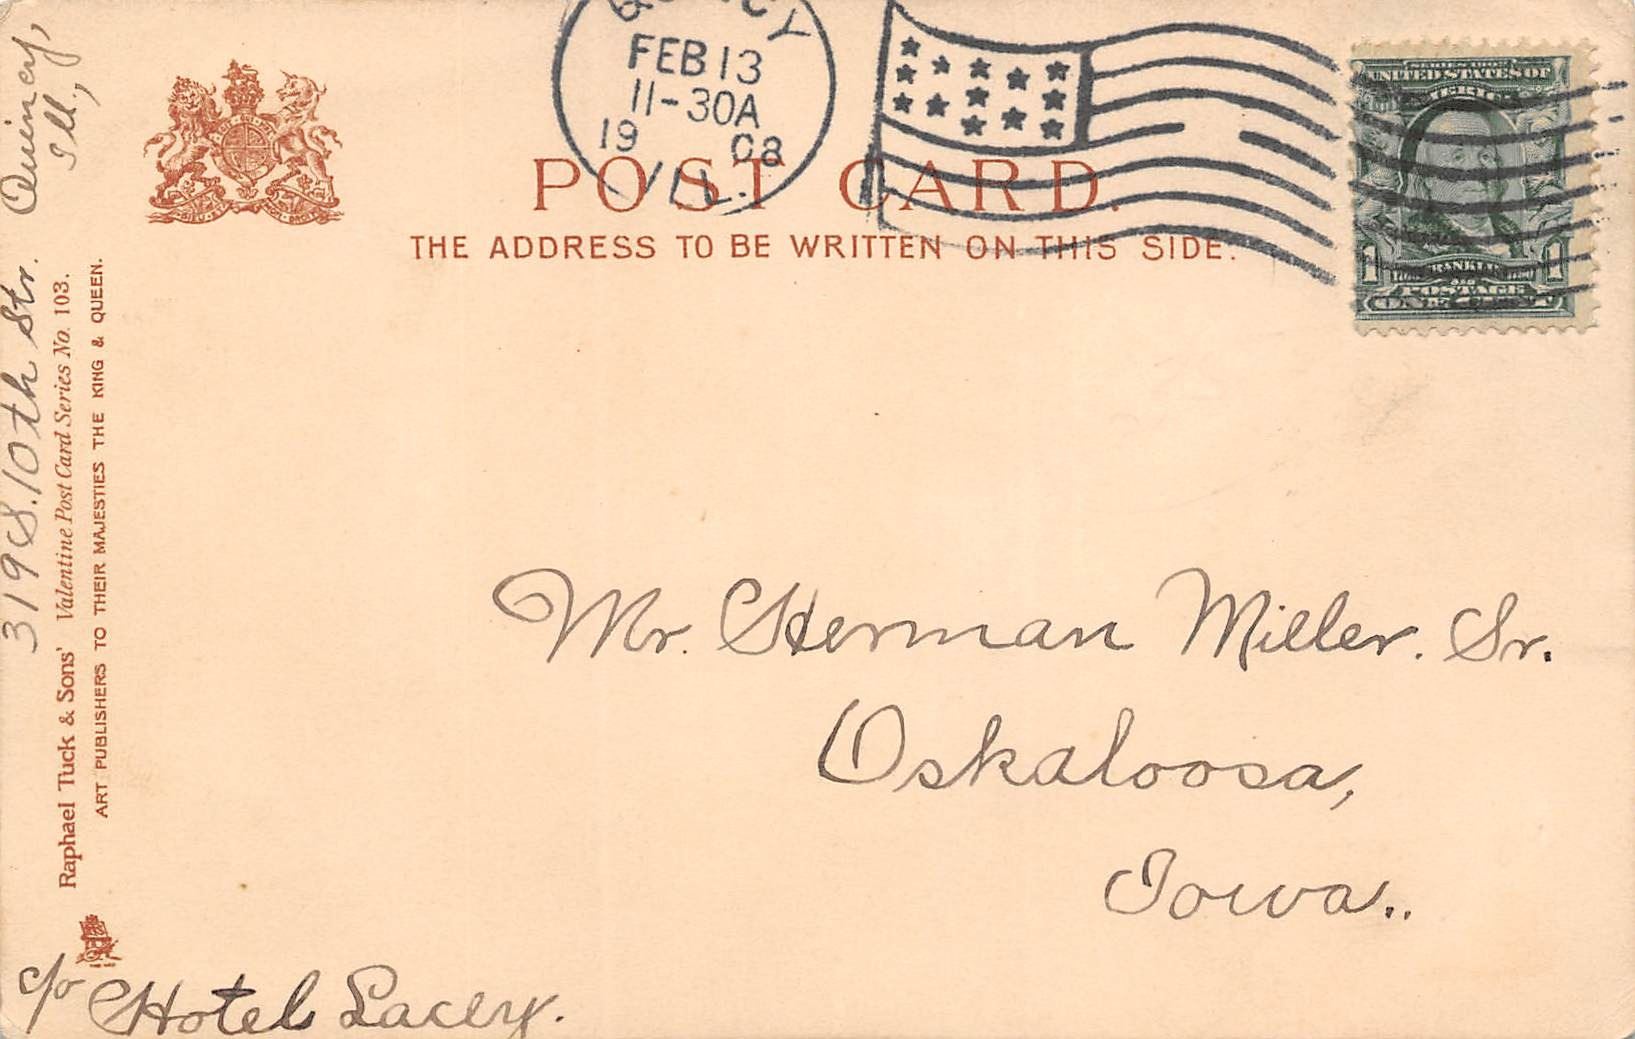 QUINCY
FEB 13
11-30A
19 08
ILL.
SERIES 1902
UNITED STATES OF
AMERICA
FRANKLIN
POSTAGE
1 ONE CENT 1
POST CARD.
THE ADDRESS TO BE WRITTEN ON THIS SIDE.
319 S. 10th Str. Quincy,
Ill.,
Raphael Tuck & Sons' Valentine Post Card Series No. 103.
ART PUBLISHERS TO THEIR MAJESTIES THE KING & QUEEN.
Mr. Herman Miller. Sr.
Oskaloosa,
Iowa..
c/o Hotel Lacey.